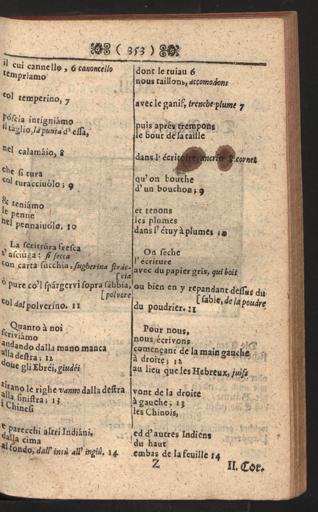 ( 353 )
il cui cannello, 6 canoncello
tempriamo
col temperino, 7
póscia intigniámo
il táglio, la punta d'essa,
nel calamáio, 8
che si tura
col turacciuólo; 9
& teniámo
le penne
nel pennaiuólo. 10
La scrittúra fresca
s'asciúga: si secca
con carta súcchia, sugherina
ò pure co'l spárgervi sopra sábbia,
[polvere
col dal polverino. 11
Quanto à noi
scriviámo
andando dalla mano manca
alla destra; 12
doue gli Ebréi, giudéi
tirano le righe vanno dalla destra
alla sinistra; 13
i Chinesi
e parecchi altri Indiáni,
dalla cima
al fondo, dall' insù all' ingiù, 14
dont le tuiau 6
nous taillons, accomodons
avec le ganif, trenche-plume 7
puis aprés trempons
le bout de sa taille
dans l'écritoire, 8 cornet
qu'on bouthe
d'un bouchon; 9
et tenons
les plumes
dans l'étuy à plumes 10
On seche
l'écriture
avec du papier gris, qui boit
ou bien en y repandant dessus du
[sable, de la poudre
du poudrier. 11
Pour nous,
nous écrivons
començant de la main gauche
à droite; 12
au lieu que les Hebreux, juifs
vont de la droite
à gauche; 13
les Chinois,
ed d'autres Indiens
du haut
embas de la feuille 14
Z
II. Cor.